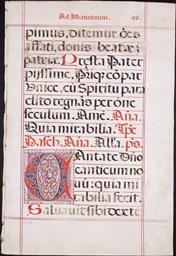 Ad Matutinum. 49.
pimus, Ditemur oēs
affati, donis beatæ
patriæ. Presta Pater
pijssime, Patriq; cōpar
Vnice, cū Spiritu para
clito regnās per ōne
sęculum. Amē. Aña.
Quia mirabilia. Tpe
Pasch. Aña. Alla. ps.
Cantate Dño
canticum no
uū: quia mi
rabilia fecit.
Saluauit sibi dexte